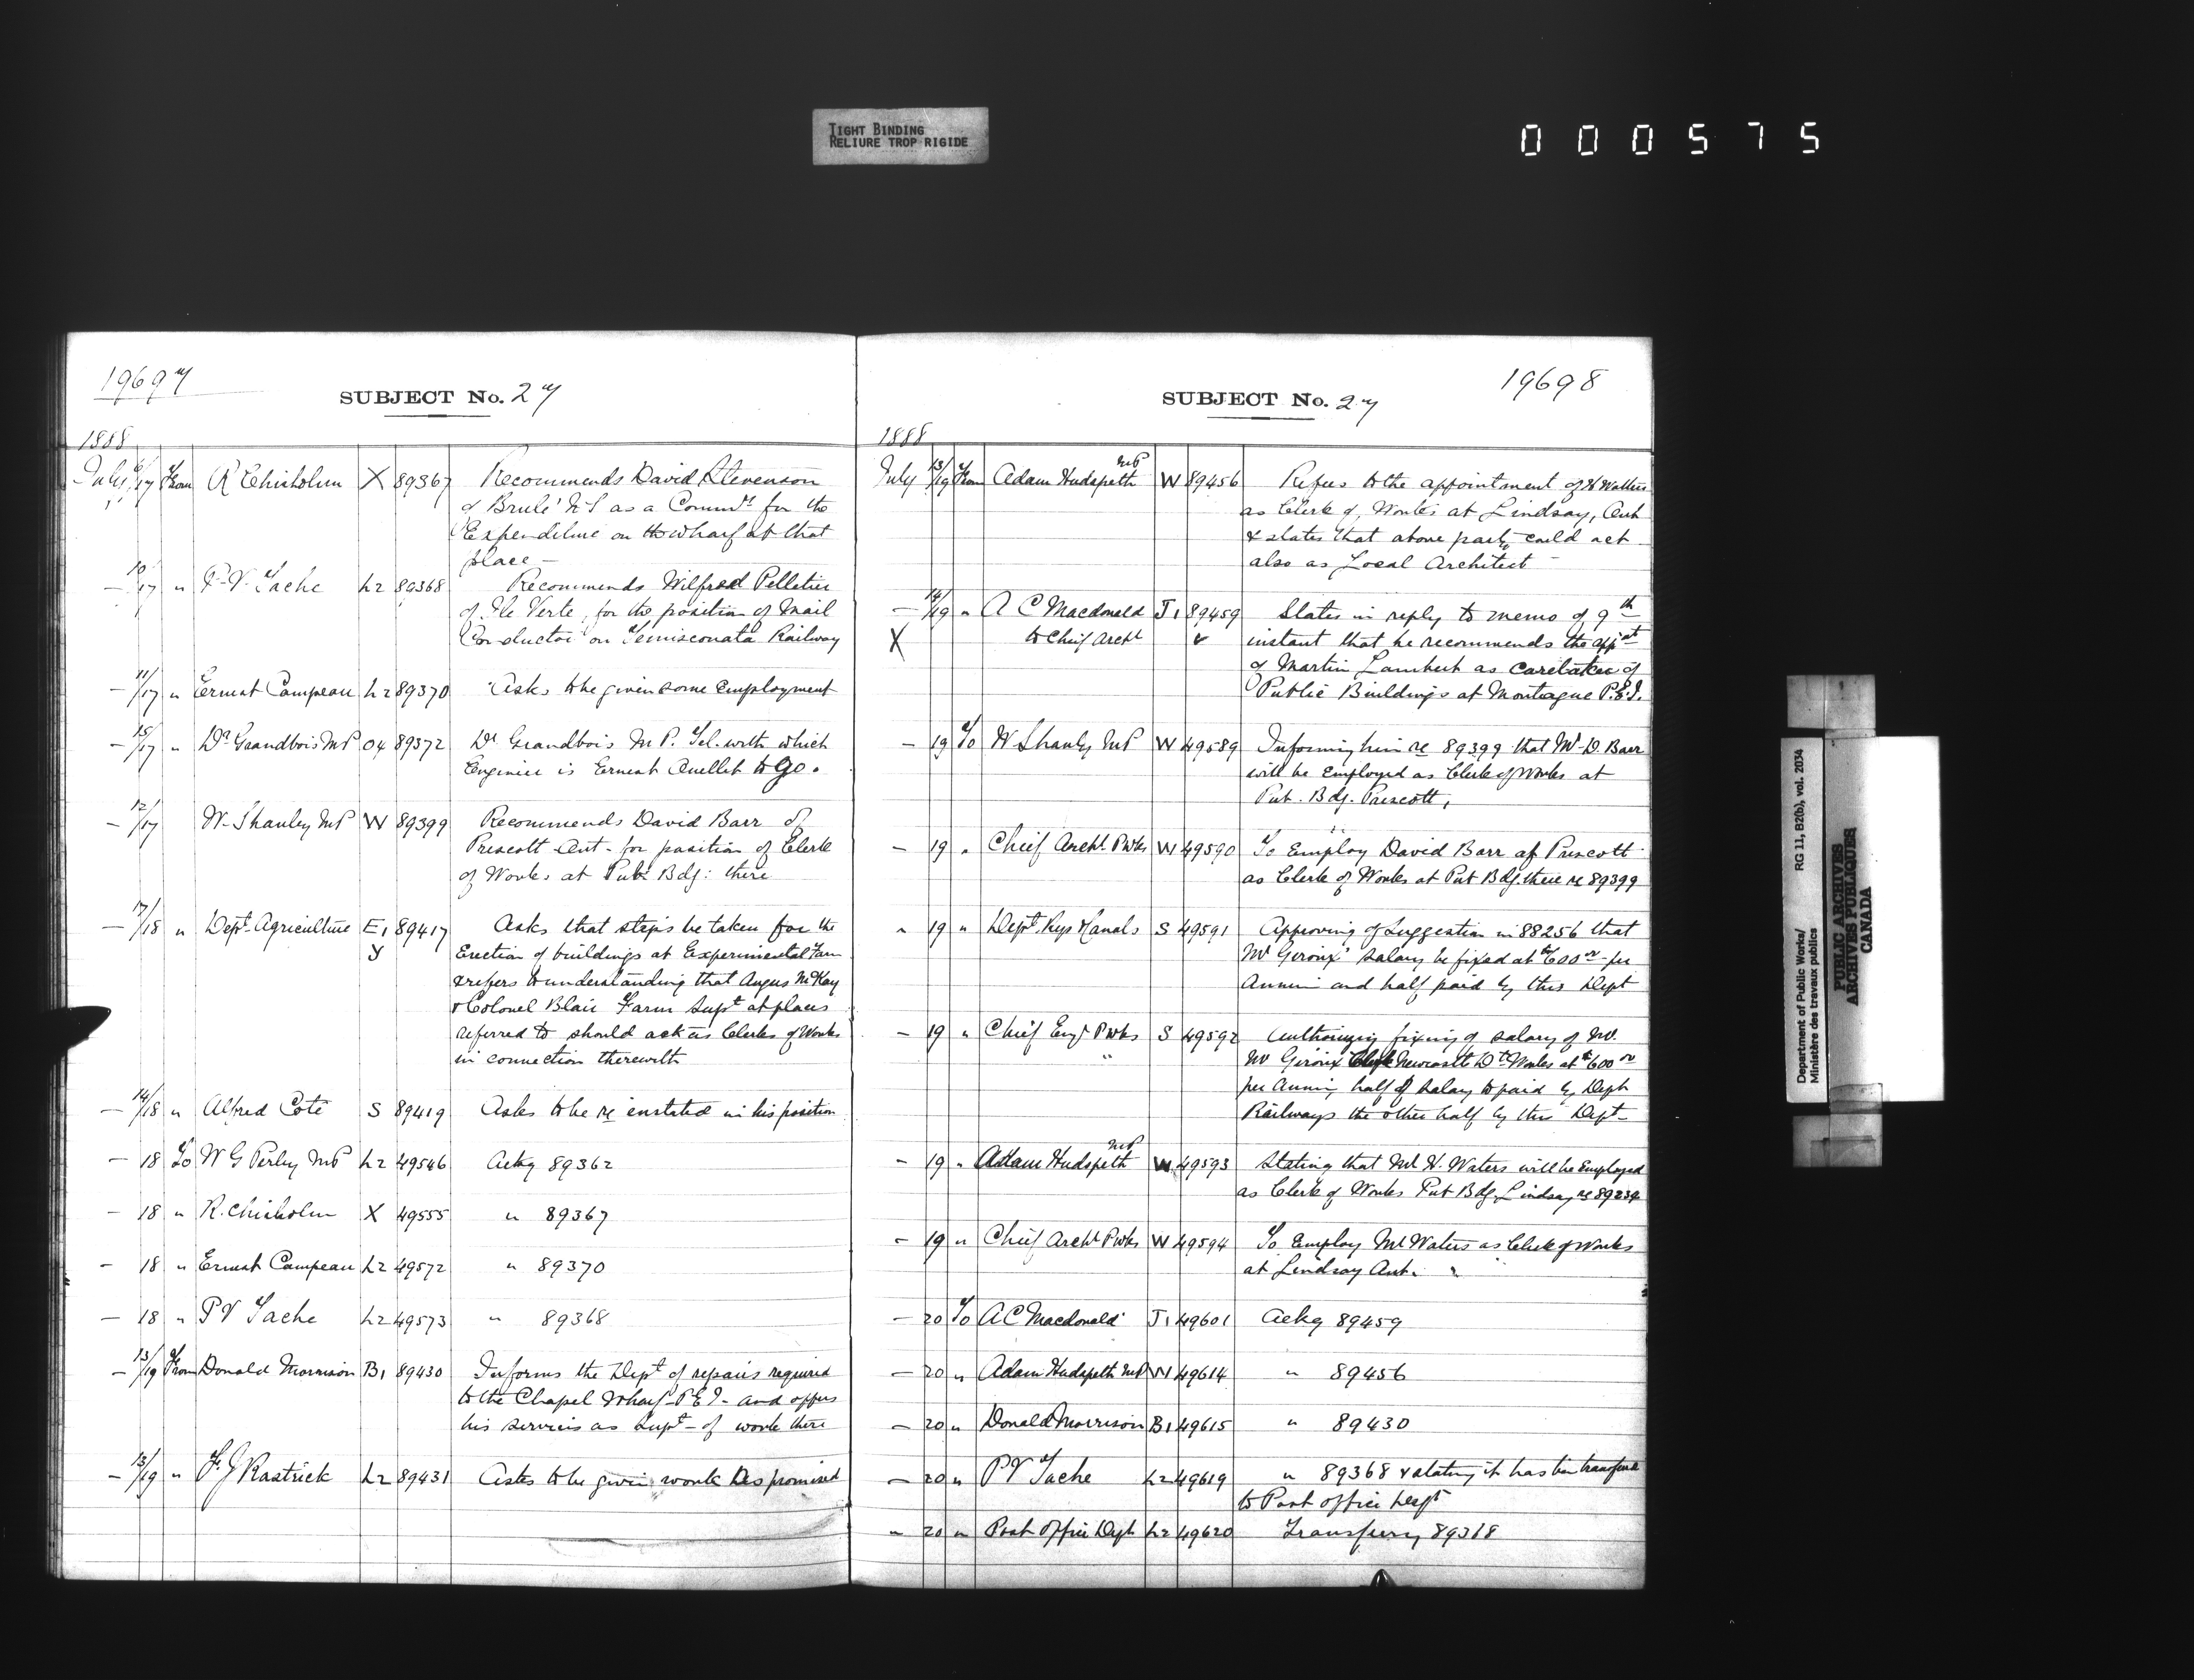 TIGHT BINDING
RELIURE TROP RIGIDE
000575
19697
SUBJECT No. 27
1888
July 17 From R Chisholm X 89367 Recommends David Stevenson
of Brulé N S as a Commr for the
Expenditure on the wharf at that
place —
— 10/17 " P. V. Tache L2 89368 Recommends Wilfred Pelletier
of Ile Verte, for the position of Mail
Conductor on Temisconata Railway
— 11/17 " Ernest Campeau L2 89370 Asks to be given some employment
— 15/17 " Dr Grandbois MP O4 89372 Dr Grandbois M P. Tel. with which
Engineer is Ernest Ouellet to go.
— 12/17 W. Shanly MP W 89399 Recommends David Barr of
Prescott Ont - for position of Clerk
of Works at Pub: Bdg: there
— 17/18 " Dept. Agriculture E1 89417 Asks that steps be taken for the
Y Erection of buildings at Experimental Farm
& refers to understanding that Angus McKay
& Colonel Blair Farm Supt at places
referred to should act as Clerks of Works
in connection therewith
— 14/18 " Alfred Coté S 89419 Asks to be re enstated in his position
— 18 To W G Perley MP L2 49546 Ackg 89362
— 18 " R. Chisholm X 49555 " 89367
- 18 " Ernest Campeau L2 49572 " 89370
— 18 " P V Tache L2 49573 " 89368
— 13/19 From Donald Morrison B1 89430 Informs the Dept of repairs required
to the Chapel Wharf P E I - and offers
his services as Supt - of work there
— 13/19 " F. J Rastrick L2 89431 Asks to be given work as promised
19698
SUBJECT No. 27
1888
July 13/19 From Adam Hudspeth MP W 89456 Refers to the appointment of H Walters
as Clerk of Works at Lindsay, Ont
& states that above party could act
also as Local Architect —
— 14/19 " A C Macdonald J1 89459 States in reply to memo of 9th
X to Chief Archt instant that he recommends the appat
of Martin Lambert as caretaker of
Public Buildings at Montague P.E.I.
— 19 To W Shanly MP W 49589 Informing him re 89399 that Mr D. Barr
will be Employed as Clerk of Works at
Pub. Bdg. Prescott,
— 19 " Chief Archt P Wks W 49590 To Employ David Barr of Prescott
as Clerk of Works at Put Bdg. there re 89399
" 19 " Dept. Rys & Canals S 49591 Approving of Suggestion in 88256 that
Mr Giroux' salary be fixed at $600 00 per
Annum and half paid by this Dept
— 19 " Chief Engr P Wks S 49592 Authorizing fixing of salary of Mr.
Mr Giroux Clerk Newcastle Dt Works at $600 00
per Annum, half of salary to paid by Dept
Railways the other half by this Dept —
- 19 " Adam Hudspeth MP W 49593 Stating that Mr H. Waters will be Employed
as Clerk of Works Put Bdg Lindsay re 89234
- 19 " Chief Archt P Wks W 49594 To Employ Mr Waters as Clerk of Works
at Lindsay Ont. "
— 20 To A C Macdonald J1 49601 Ackg 89459
— 20 " Adam Hudspeth MP W 49614 " 89456
— 20 " Donald Morrison B1 49615 " 89430
— 20 " P V Tache L2 49619 " 89368 & stating it has been transferred
to Post office Dept
" 20 " Post Office Dept L2 49620 Transferring 89368
Department of Public Works/
Ministère des travaux publics
RG 11, B2(b), vol. 2034
PUBLIC ARCHIVES
ARCHIVES PUBLIQUES
CANADA